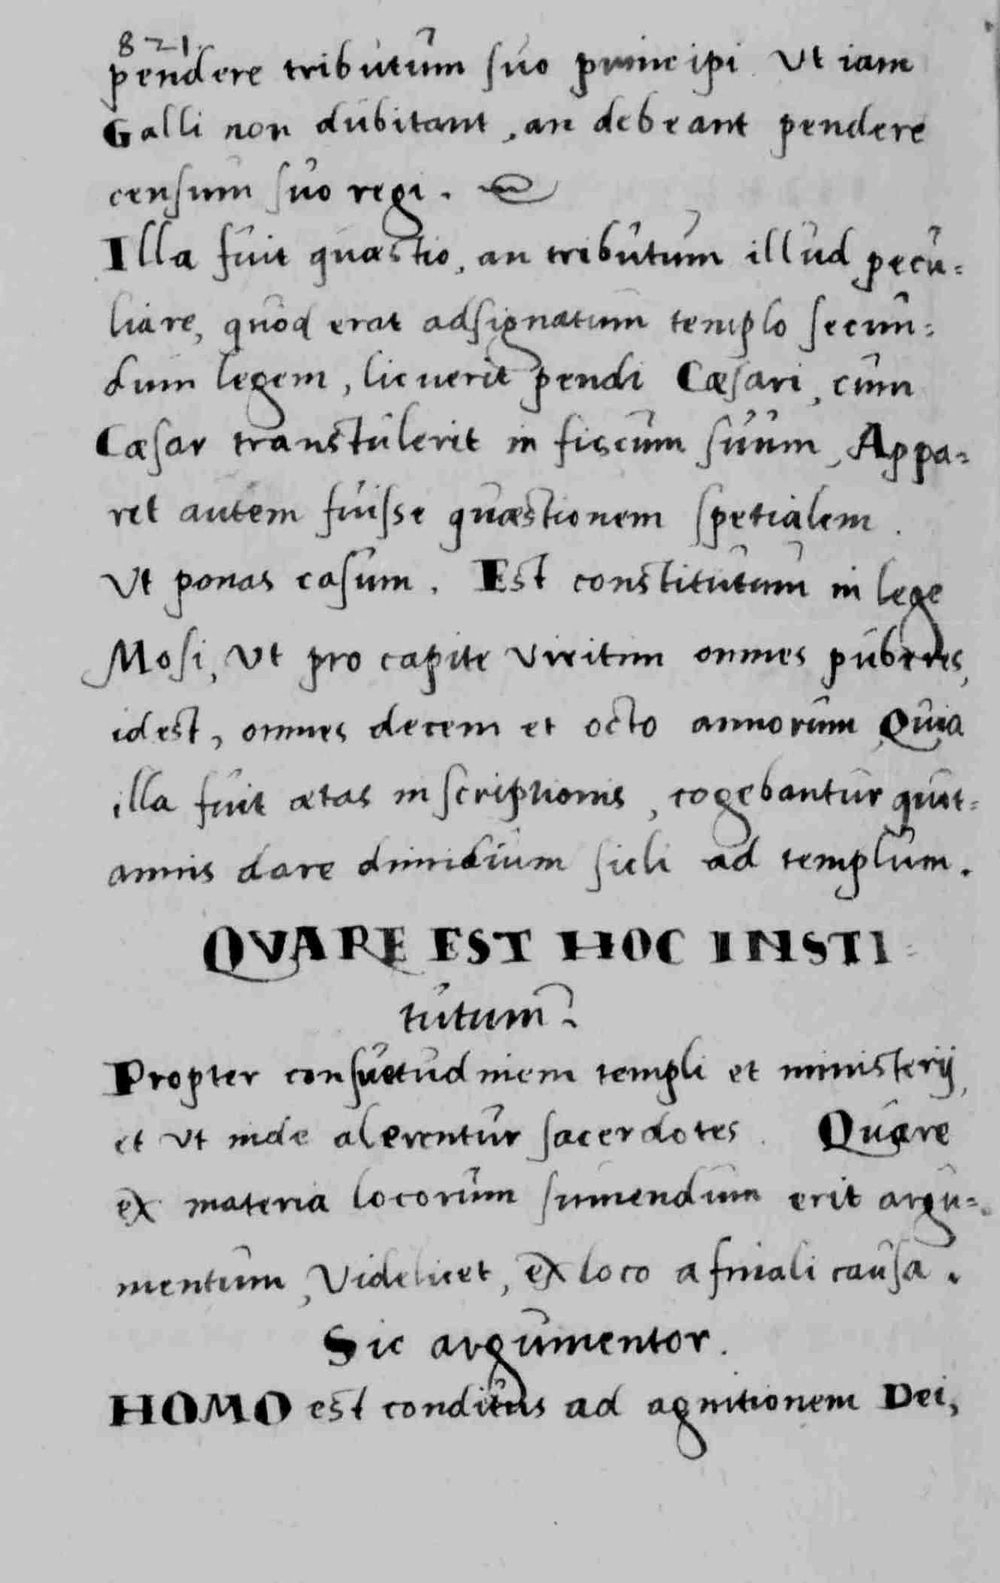 821.
pendere tributum suo principi Ut iam
Galli non dubitant, an debeant pendere
censum suo regi.
Illa fuit quæstio, an tributum illud pecu=
liare, quod erat adsignatum templo secun=
dum legem, licuerit pendi Cæsari, cum
Cæsar transtulerit in fiscum suum, Appa=
ret autem fuisse quæstionem spetialem.
Ut ponas casum. Est constitutum in lege
Mosi, Ut pro capite viritim omnes puberes,
idest, omnes decem et octo annorum Quia
illa fuit ætas inscriptionis, cogebantur quot=
annis dare dimidium sicli ad templum.
QVARE EST HOC INSTI=
tutum?
Propter consuetudinem templi et ministerij,
et ut inde alerentur sacerdotes. Quare
ex materia locorum sumendum erit argu=
mentum, Videlicet, ex loco a finali causa.
Sic argumentor.
HOMO est conditus ad agnitionem Dei,